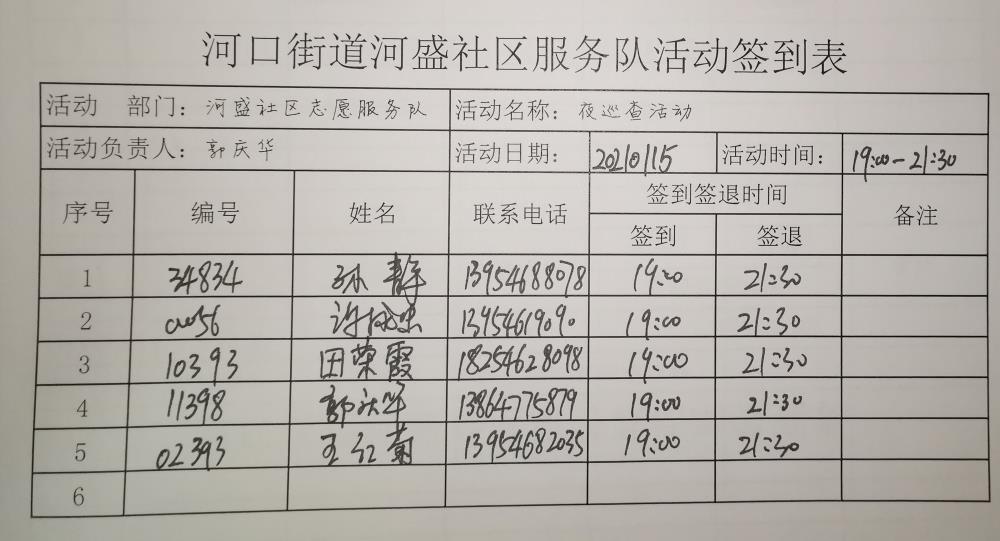 河口街道河盛社区服务队活动签到表
活动 部门：河盛社区志愿服务队 活动名称：夜巡查活动
活动负责人：郭庆华 活动日期：20210115 活动时间：19:00-21:30
序号 编号 姓名 联系电话 签到签退时间 备注
签到 签退
1 34834 孙静 13954688078 19:00 21:30
2 13954619090 19:00 21:30
3 10393 田荣霞 18254628098 19:00 21:30
4 11398 郭庆华 13864775879 19:00 21:30
5 02393 王红菊 13954682035 19:00 21:30
6